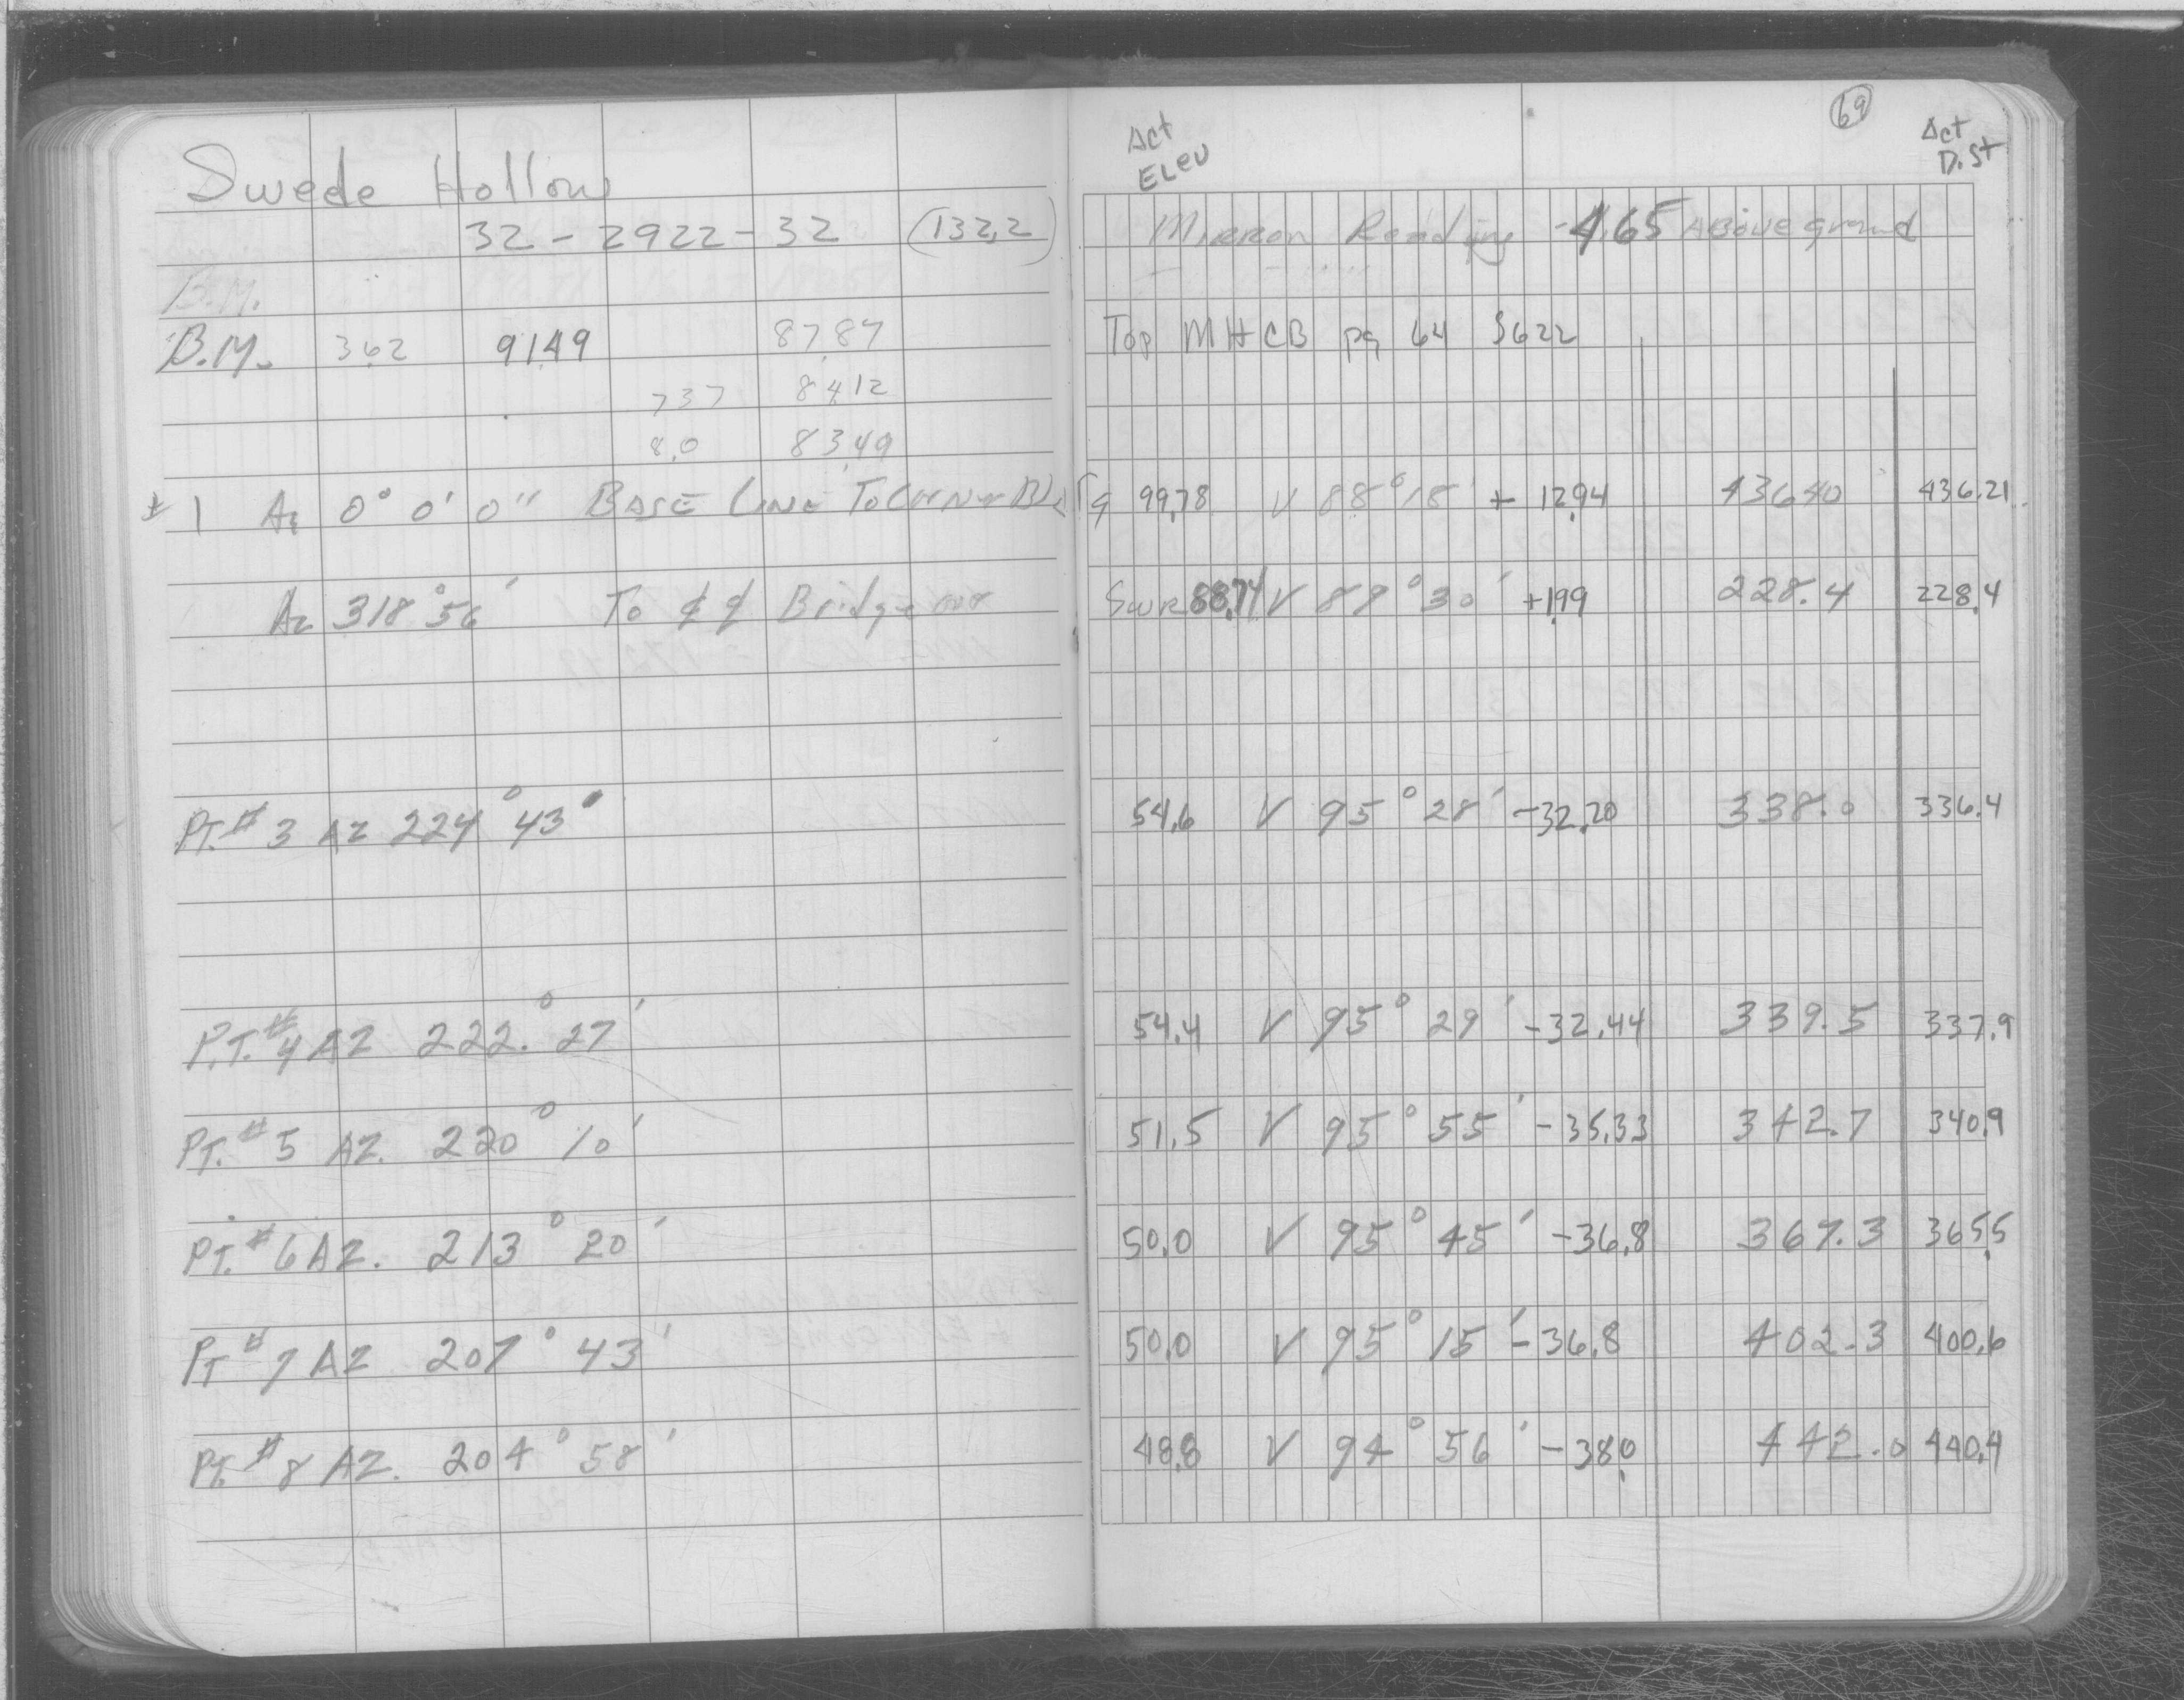 Swede Hollow
32 - 2922 - 32 (132.2)
B.M.
B.M. 3.62 91.49 87.87
7.37 84.12
8.0 83.49
# 1 Az 0° 0' 0" BASE LINE To Corner
Az 318° 56' To ¢ ¢ Bridge
PT. # 3 AZ 224° 43'
P.T. # 4 AZ 222.° 27'
PT. # 5 AZ. 220° 10'
PT. # 6 AZ. 213° 20'
PT # 7 AZ 207° 43'
PT. # 8 AZ. 204° 58'
69
Act Elev
Act Dist
Mirror Reading -4.65 Above ground
Top MH CB pg 64 3622
99.78 V 88° 18' + 12.94 436.40 436.21
88.74 V 89° 30' +1.99 228.4 228.4
54.6 V 95° 28' -32.20 338.0 336.4
54.4 V 95° 29' -32.44 339.5 337.9
51.5 V 95° 55' -35.33 342.7 340.9
50.0 V 95° 45' -36.8 367.3 365.5
50.0 V 95° 15' -36.8 402.3 400.6
48.8 V 94° 56' -38.0 442.0 440.4